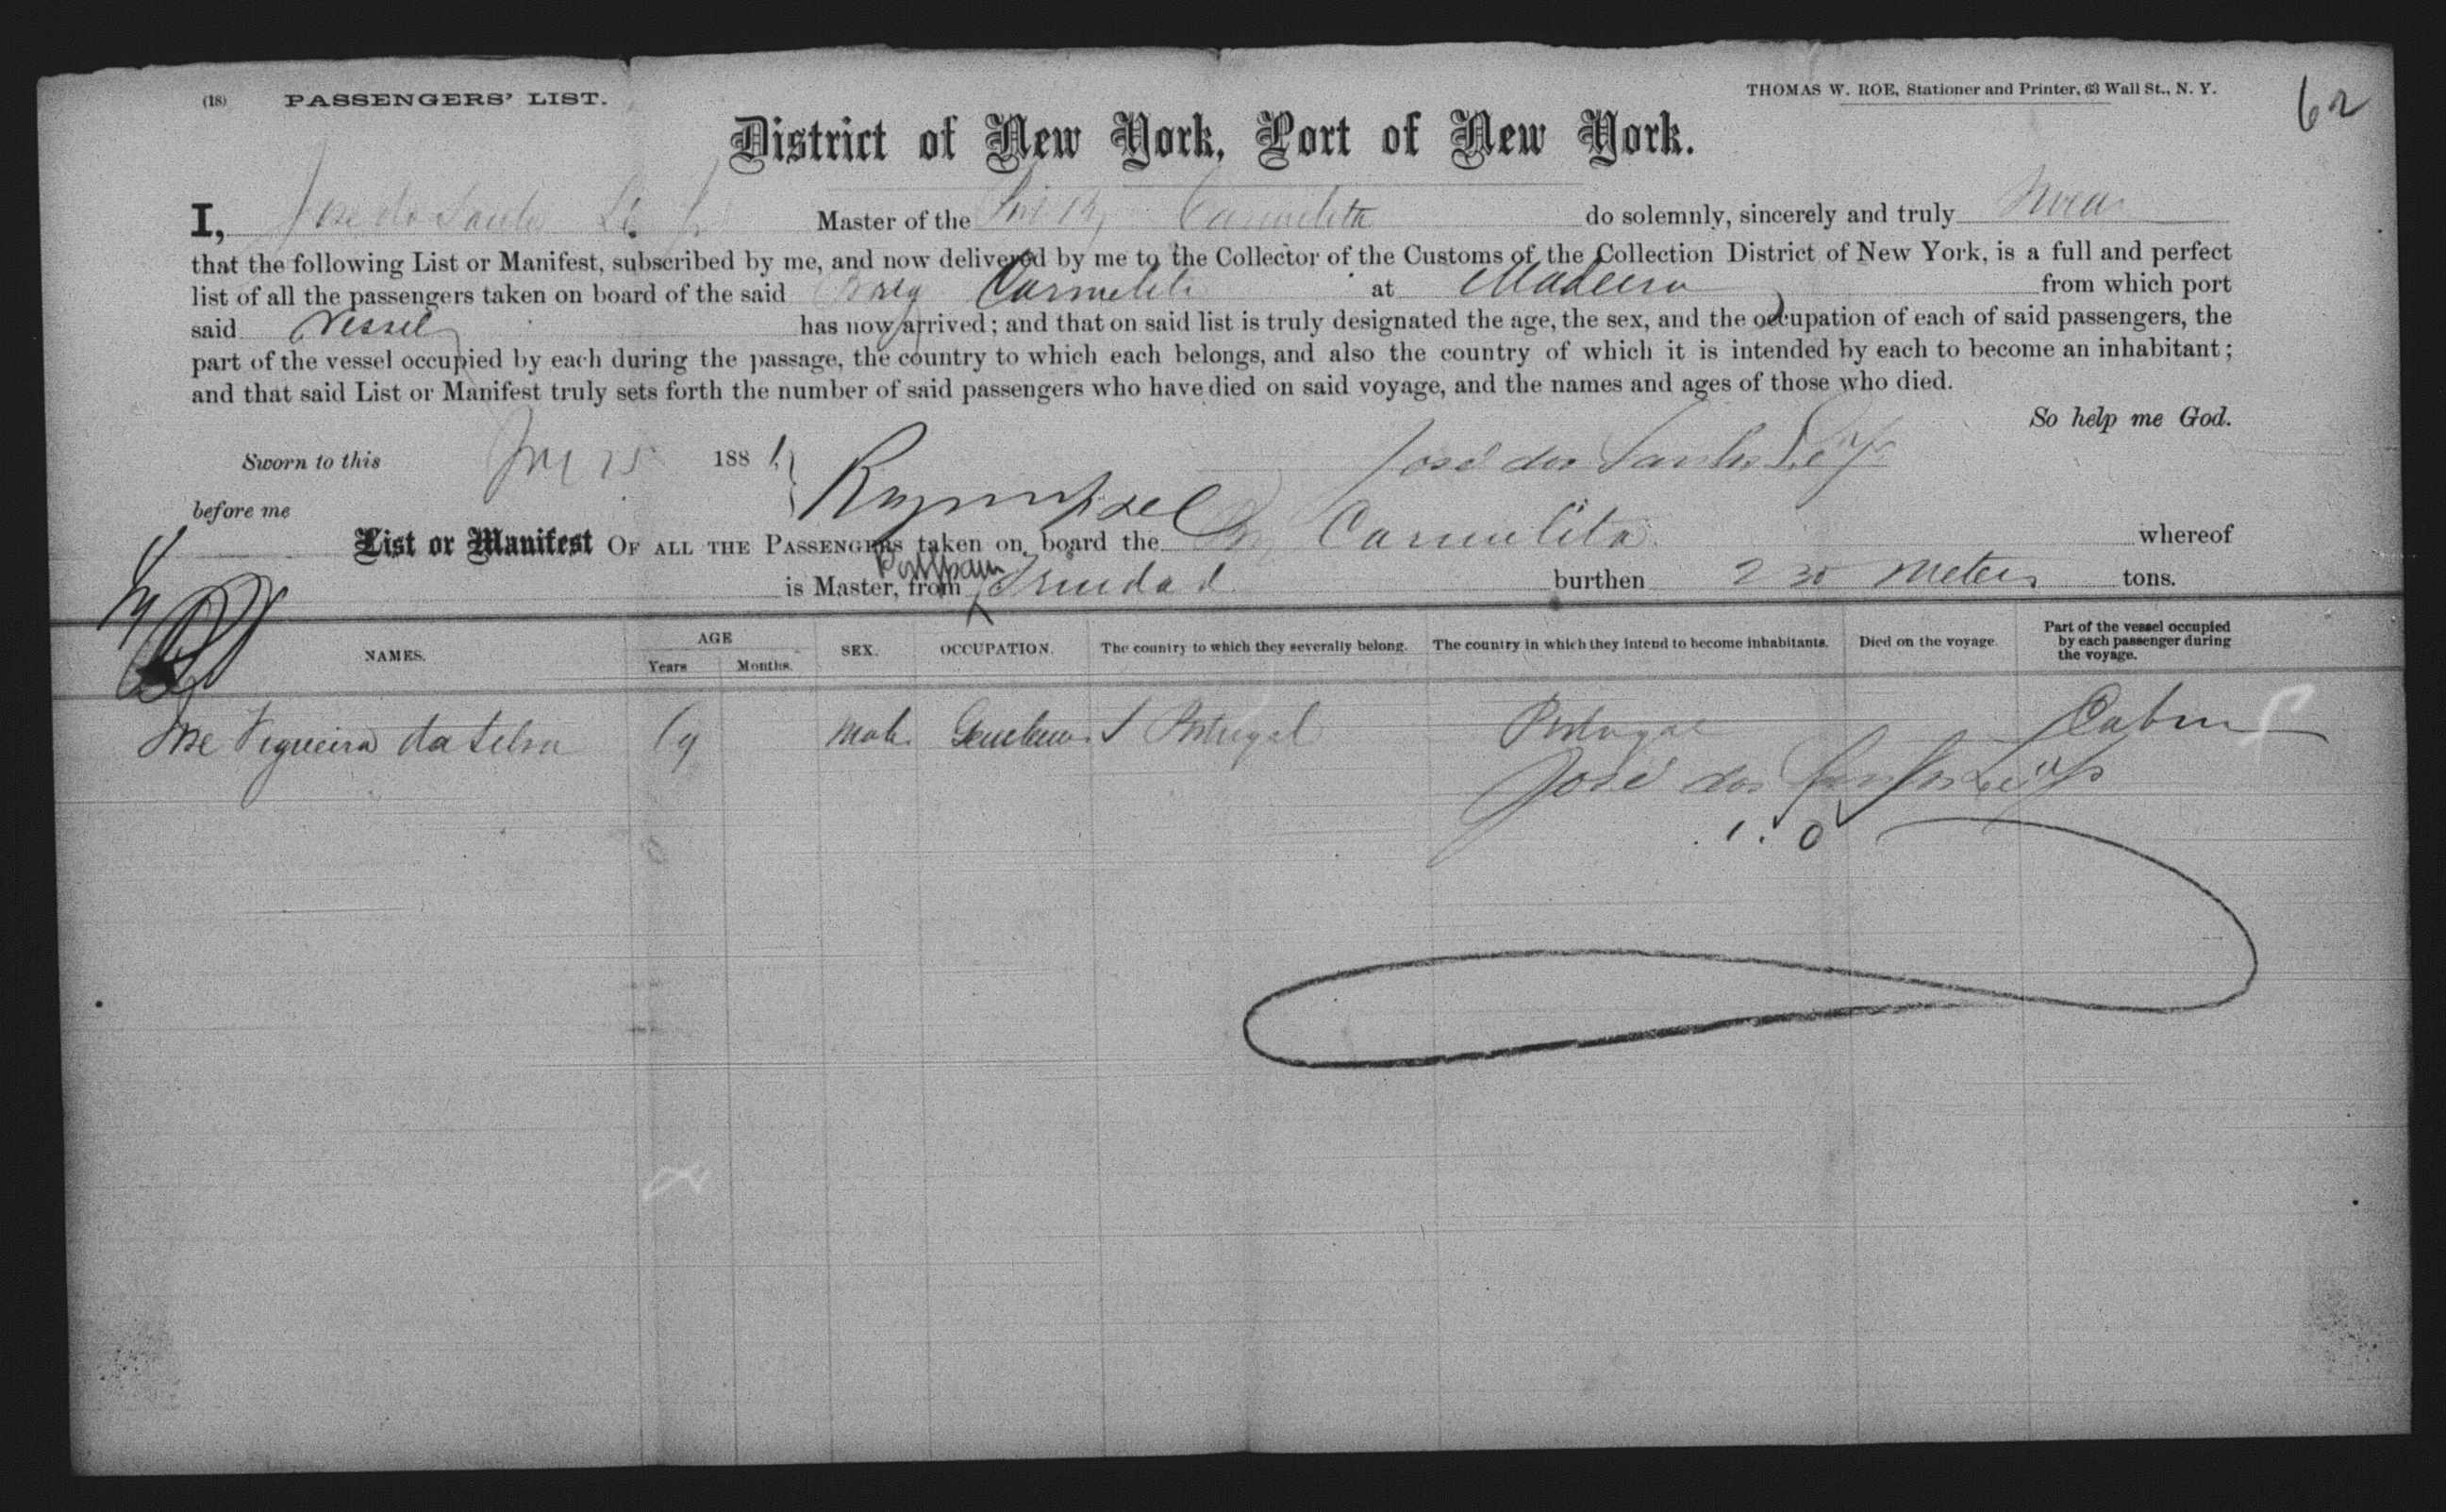 (18) PASSENGERS' LIST.
THOMAS W. ROE, Stationer and Printer, 63 Wall St., N. Y.
62
District of New York, Port of New York.
I, Jose do Master of the Carmelita do solemnly, sincerely and truly swear
that the following List or Manifest, subscribed by me, and now delivered by me to the Collector of the Customs of the Collection District of New York, is a full and perfect
list of all the passengers taken on board of the said Carmelita at Madeira from which port
said Vessel has now arrived; and that on said list is truly designated the age, the sex, and the occupation of each of said passengers, the
part of the vessel occupied by each during the passage, the country to which each belongs, and also the country of which it is intended by each to become an inhabitant;
and that said List or Manifest truly sets forth the number of said passengers who have died on said voyage, and the names and ages of those who died.
So help me God.
Sworn to this 188 José dos Santos
before me
List or Manifest OF ALL THE PASSENGERS taken on board the Carmelita whereof
is Master, from Trinidad burthen 230 meters tons.
NAMES. AGE Years Months. SEX. OCCUPATION. The country to which they severally belong. The country in which they intend to become inhabitants. Died on the voyage. Part of the vessel occupied by each passenger during the voyage.
Jose Figueira da Silva 19 Male Portugal Portugal Cabin
José dos Santos